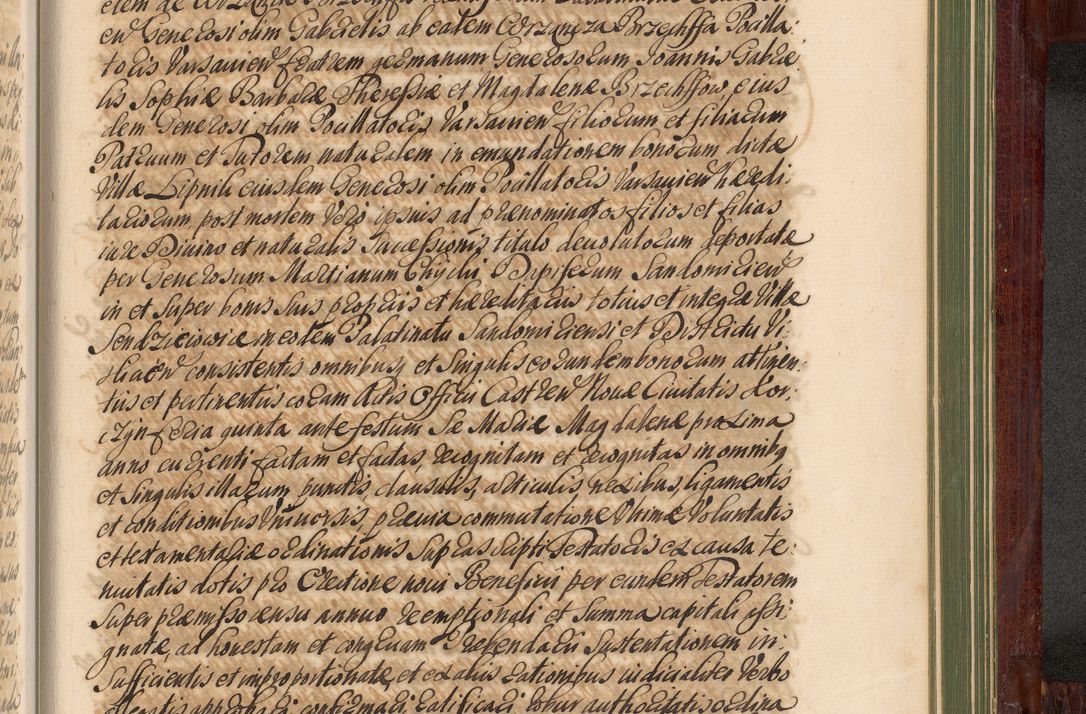 en Generosi olim Gabrielis ab eadem Corzanięza Brzechffa Pocilla-
toris Varsavien fratrem germanum Generosorum Joannis Gabrie
lis Sophiæ Barbaræ Theressiæ et Magdalenæ Brzechffow, eius
dem Generosi olim Pocillatoris Varsavien filiorum et filiarum
Patruum et Tutorem naturalem in emundationem bonorum dictæ
Villæ Lipniki eiusdem Generosi olim Pocillatoris Varsavien hæredi-
tariorum, post mortem vero ipsius ad prænominatos filios et filias
iure Divino et naturalis Successionis titulo devolutorum reportatæ
per Generosum Martianum Chycki, Dapiferum Sandomirien
in et super bonis suis propriis et hæreditariis totius et integræ Villæ
Sendzieiowiæ in eodem Palatinatu Sandomiriensi et Districtu Vi-
sliacen consistentis omnibusq et singulis eorundem bonorum attinen-
tiis et pertinentiis coram Actis Officii Castren Novæ Civitatis Kor-
czyn feria quinta ante festum Sæ Mariæ Magdalenæ proxima
anno currenti factam et factas, recognitam et recognitas in omnibq
et singulis illarum punctis, clausulis, articulis, nexibus, ligamentis
et conditionibus universis, prævia commutatione ultimæ Voluntatis
et testamentariæ ordinationis suprascripti Testatoris ex causa te-
nuitatis dotis pro Erectione novi Beneficii per eundem Testatorem
super præmisso censu annuo reemptionali et summa capitali assi-
gnatæ, ad honestam et congruam Præbendarii sustentationem in-
sufficientis et improportionatæ, et ex aliis rationibus iudicialiter verbo
allegatis approbari confirmari, ratificari, robur authoritatis ordina